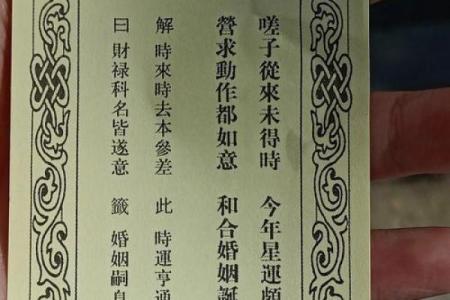 嗟子從來未得時 今年星運頗
營求動作都如意 和合婚姻誕
解 時來時去本參差 此 時運亨通
曰 財禄科名皆遂意 籤 婚姻嗣